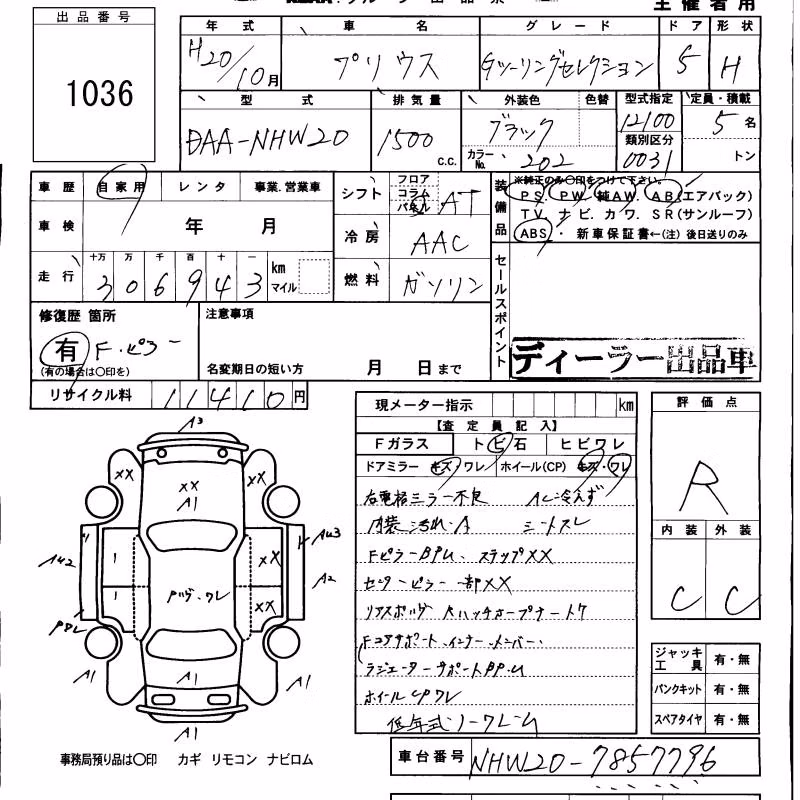 主催者用
出品番号
1036
年式 車名 グレード ドア 形状
H20/10月 プリウス Gツーリングセレクション 5 H
型式 排気量 外装色 色替 型式指定 定員・積載
DAA-NHW20 1500c.c. ブラック 12100 5名
カラーNo. 202 類別区分 0031 トン
車歴 自家用 レンタ 事業.営業車
シフト フロア コラム パネル AT
装備品 ※純正のみ〇印をつけて下さい。
PS. PW. 純AW. AB.(エアバック)
TV. ナビ. カワ. SR(サンルーフ)
ABS. 新車保証書←(注)後日送りのみ
車検 年 月
冷房 AAC
走行 十万 万 千 百 十 一
306943 km マイル
燃料 ガソリン
セールスポイント
ディーラー出品車
修復歴 箇所
有 F.ピラー
(有の場合は〇印を)
注意事項
名変期日の短い方 月 日まで
リサイクル料 11410円
現メーター指示 km
【査定員記入】
Fガラス トビ石 ヒビワレ
ドアミラー キズ・ワレ ホイール(CP) キズ・ワレ
右電格ミラー不良 AC冷えず
内装汚れ・A シートスレ
FピラーBPU. ステップXX
センターピラー一部XX
Fコアサポート.インナー.メンバー.
ラジエーターサポートBP.U
ホイールCPワレ
評価点
R
内装 外装
C C
ジャッキ工具 有・無
パンクキット 有・無
スペアタイヤ 有・無
車台番号 NHW20-7857796
A3
XX XX XX
A1
A43
A42
A2
XX
XX
A1 A1 A1
A1
事務局預り品は〇印 カギ リモコン ナビロム